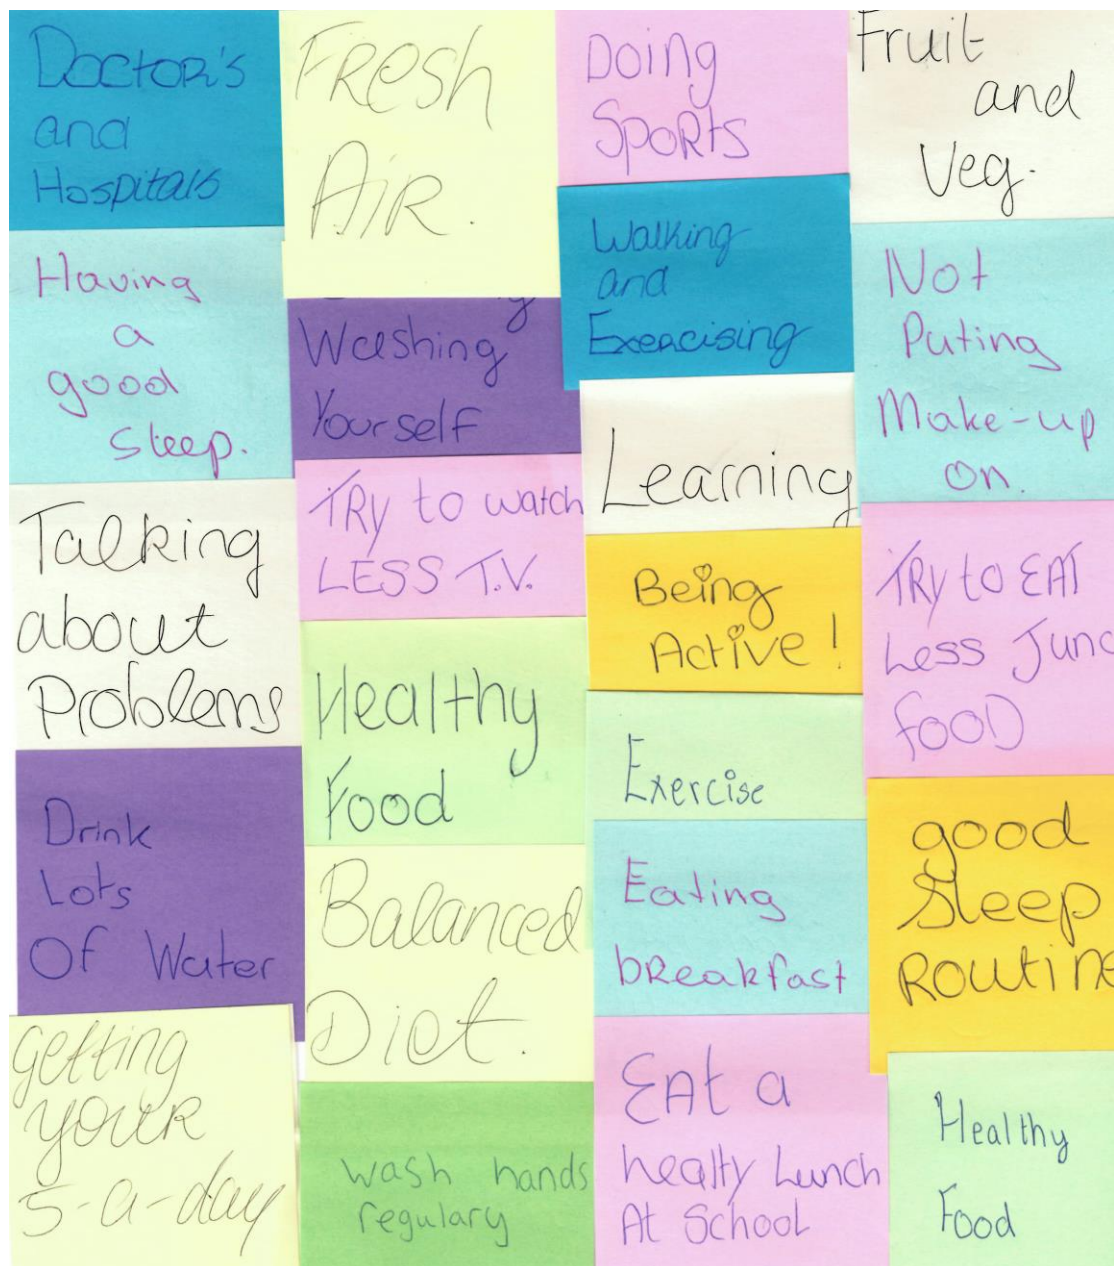 Doctor's
and
Hospitals
Having
a
good
sleep.
Talking
about
Problems
Drink
Lots
Of Water
getting
your
5-a-day
FRESH
AIR.
Washing
Yourself
TRY to watch
LESS T.V.
Healthy
Food
Balanced
Diet.
wash hands
regulary
Doing
Sports
Walking
and
Exercising
Learning
Being
Active!
Exercise
Eating
breakfast
EAt a
healty Lunch
At School
Fruit
and
Veg.
Not
Puting
Make-up
on.
TRY to EAT
Less Junc
FOOD
good
Sleep
Routine
Healthy
Food